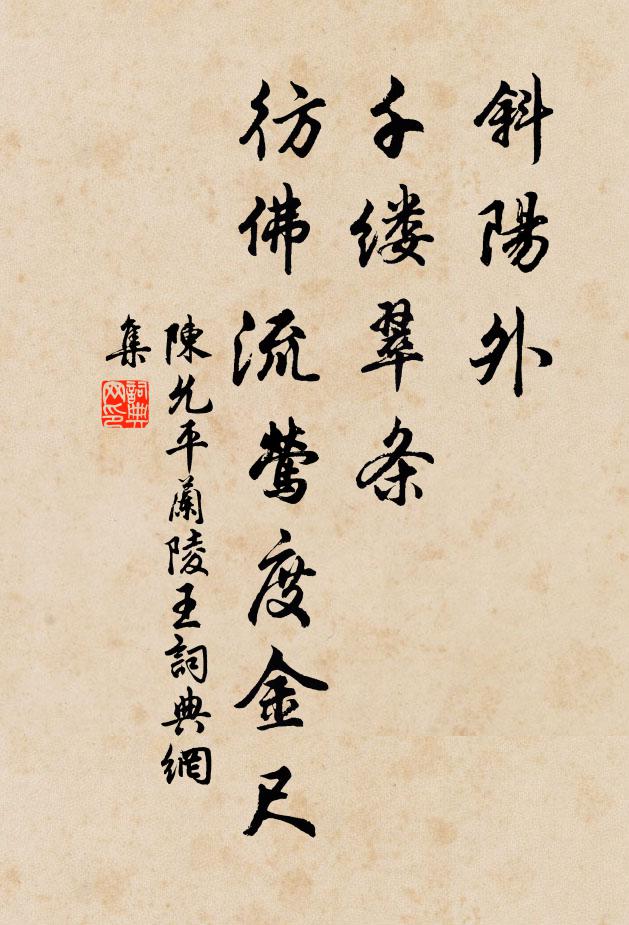 斜陽外
千缕翠条
彷佛流莺度金尺
陳允平蘭陵王詞典網
集
詞典
网印